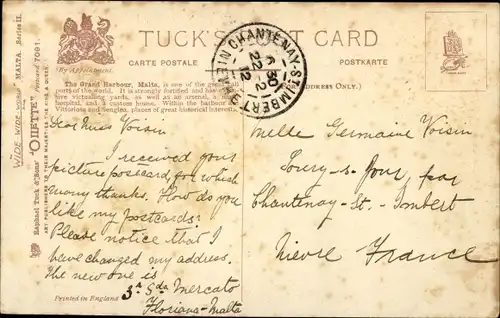 TUCK'S POST CARD
CARTE POSTALE
POSTKARTE
(By Appointment)
The Grand Harbour, Malta, is one of the great
ports of the world. It is strongly fortified and has
victualling yards, as well as an arsenal, a
hospital, and a custom house. Within the harbour
Vittoriosa and other places of great historical interest.
ADDRESS ONLY.)
CHANTENAY-ST-IMBERT
6 30
22 -2
12
NIEVRE
WIDE-WIDE-WORLD MALTA Series II.
Raphael Tuck & Sons' "OILETTE" Postcard 7091.
ART PUBLISHERS TO THEIR MAJESTIES THE KING & QUEEN
Dear Miss Voisin
I received your
picture postcard, for which
many thanks. How do you
like my postcards?
Please notice that I
have changed my address.
The new one is
3A Sda Mercato
Floriana - Malta
Printed in England
Melle Germaine Voisin
par
Chantenay-St.-Imbert
Nievre France